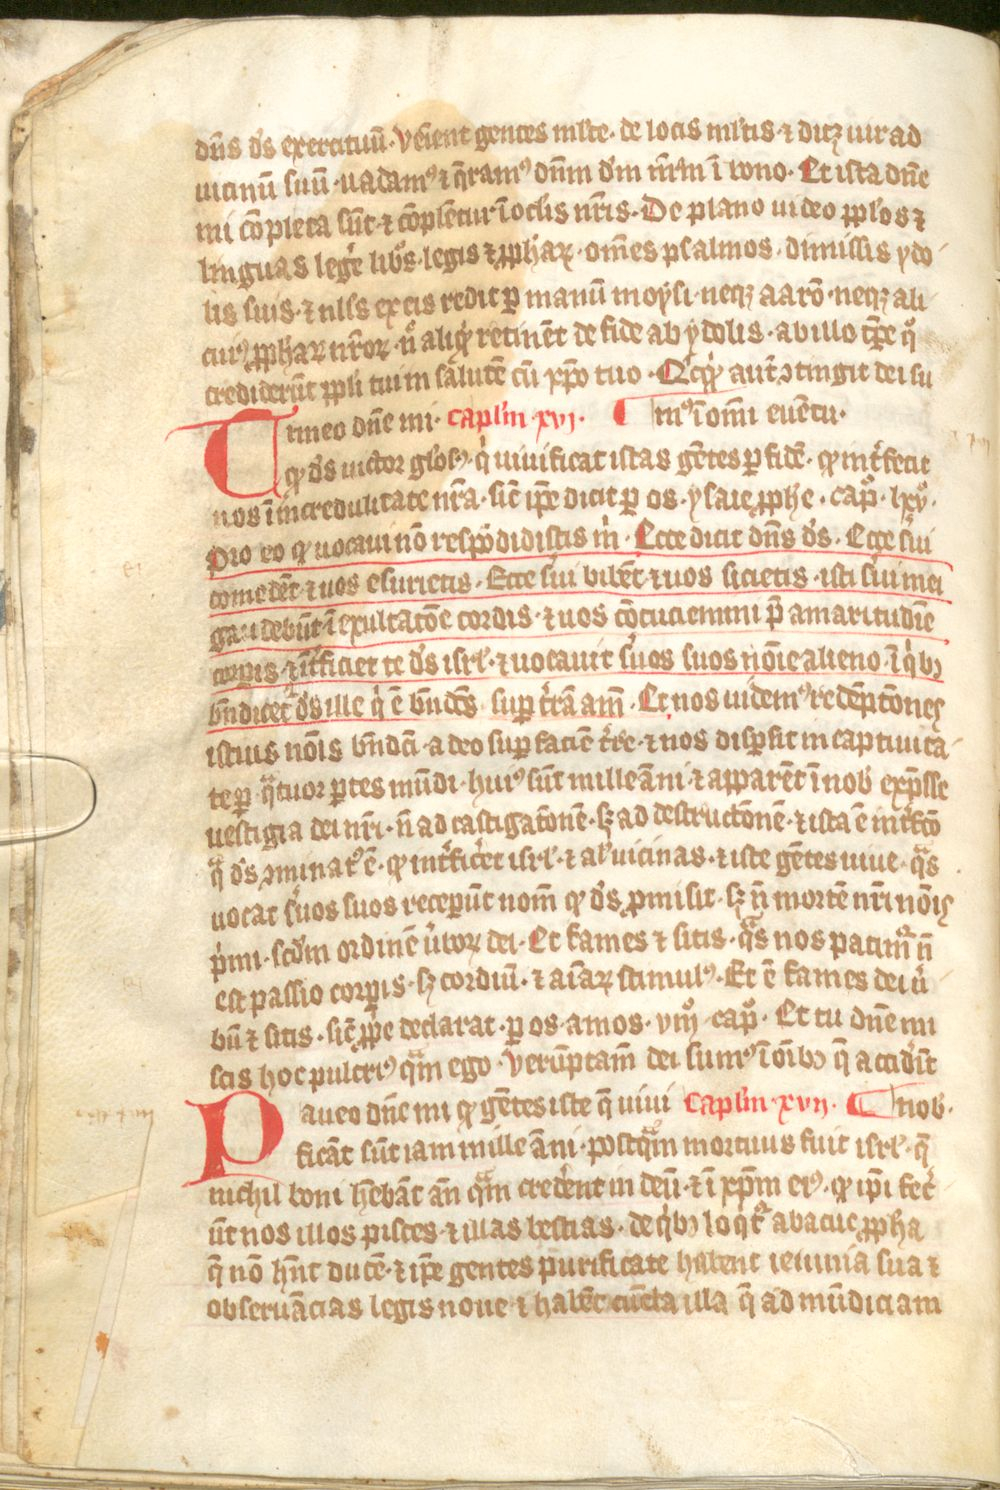 dn̄s ds̄ exercituū · Veniēnt gentes mlt̄e · de locis mlt̄is · ⁊ dicꝫ uir ad
uicinū suū · uadamꝰ ⁊ q̄ramꝰ dn̄m dm̄ nr̄m ī bono · Et ista dn̄e
mi cōpleta sūt · ⁊ cōplent̄ur ī oclis nr̄is · De plano uideo ppl̄os ⁊
linguas leger̄e libros legis ⁊ ꝓphaꝝ · om̄es psalmos · dimissis ydo-
lis suis · ⁊ nlls ex eis redit ꝑ manū moysi · neqꝫ aarō · neqꝫ ali
cuiꝰ ꝓphaꝝ nr̄oꝝ · n̄ aliqͥd retinēt de fide ab ydolis · ab illo tp̄e qͦ
crediderūt ppl̄i tui in salutē cū xp̄o tuo · Qicqͥd aut̄ ꝯtingit dei su
Timeo dn̄e mi · Caplm̄ xvj · ¶ mꝰ ī omi euētu ·
ꝙ ds̄ uictor glōsꝰ · qͥ uiuificat istas gētes ꝑ fidē · ꝙ int̄fecit
nos ī incredulitate nr̄a · sic̄ ip̄e dicit ꝑ os · ysaie ꝓphe · capͦ · lxvͦ ·
Pro eo ꝙ uocaui nō respōdidistis m̄ · Ecce dicit dn̄s ds̄ · Ecce sui
comedēt ⁊ uos esurietis · Ecce sui bibēt ⁊ uos sicietis · isti sui mei
gaudebūt ī exultatōe cordis · ⁊ uos cōcuciemini p̄ amaritudīe
corꝑis · ⁊ īt̄ficiet te ds̄ isrl̄ · ⁊ uocauit suos suos noīe alieno · ī qͥbꝫ
bn̄dicet̄ ds̄ ille qͥ ē bn̄dc̄s suꝑ t̄rā am̄ · Et nos uidemꝰ redēptōnes
istius nōis bn̄dci · adeo suꝑ faciē t̄re · ⁊ nos disꝑsit in captiuita-
te ꝑ qͣtuor ꝑtes mūdi · huiꝰ sūt mille āni ⁊ apparēt ī nob̄ exp̄sse
uestigia dei nr̄i · n̄ ad castigatōnē · sꝫ ad destructōnē · ⁊ ista ē int̄fctō
qͣ ds̄ ꝯminatꝰ ē · ꝙ int̄ficēt isrl̄ · ⁊ al̄ uicinas · ⁊ iste gētes uiue · qͣs
uocat suos suos receꝑūt nom̄ ꝙ ds̄ ꝓmisit · sꝫ n̄ mortē nr̄i nōis
pͥmi · scd̄m ordinē ūboꝝ dei · Et fames ⁊ sitis · qͣs nos patimͬ n̄
est passio corꝑis · sꝫ cordiū · ⁊ aīaꝝ stimulꝰ · Et ē fames dei ū-
bū ⁊ sitis · sic̄ ꝓp̄e declarat · ꝑ os · amos · viijͦ capͦ · Et tu dn̄e mi
scis hoc pulcriꝰ qͣm ego · Verūptam̄ dei sumꝰ ī oībꝫ q̄ accidūt
Paueo dn̄e mi ꝙ gētes iste q̄ uiui Caplm̄ · xvij · ¶ nob̄ ·
ficāt sūt iam mille āni · postqͣm mortuus fuit isrl̄ · q̄
nichil boni hēbāt an̄ qͣm crederent in deū · ⁊ ī xp̄m eiꝰ · ꝙ ip̄i fecer̄
ūt nos illos pisces · ⁊ illas bestias · de qͥbꝫ loqͥtͬ abacuc ꝓpha
q̄ nō hn̄t ducē · ⁊ ip̄e gentes purificate habent ieiunia sua ⁊
obseruācias legis noue ⁊ habēt cūcta illa q̄ ad mūdiciam